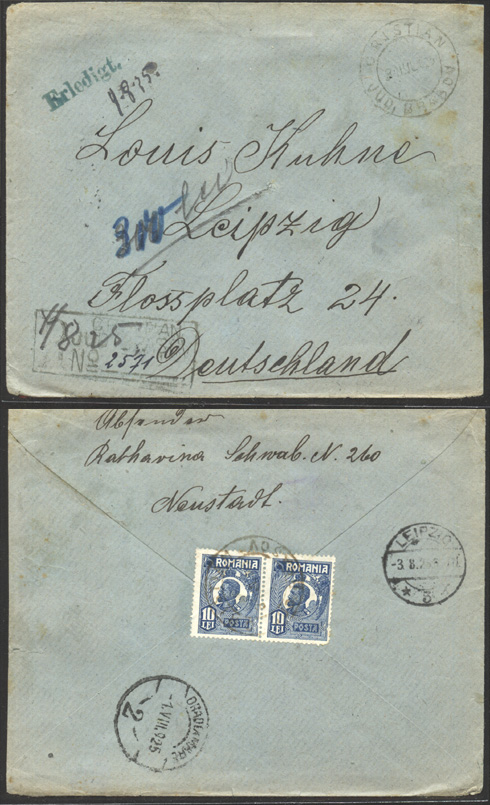 Erledigt.
9.8.25.
CRISTIAN
JUD. BRASOV
Louis Kuhne
Leipzig
Flossplatz 24.
Deutschland
4/8 25
No 2571
Absender
Katharina Schwab. N. 260
Neustadt.
ROMANIA
10 LEI
POSTA
ROMANIA
10 LEI
POSTA
LEIPZIG
-3.8.25
* 8 *
ORADIA MARE
-1.VIII.925
-2-